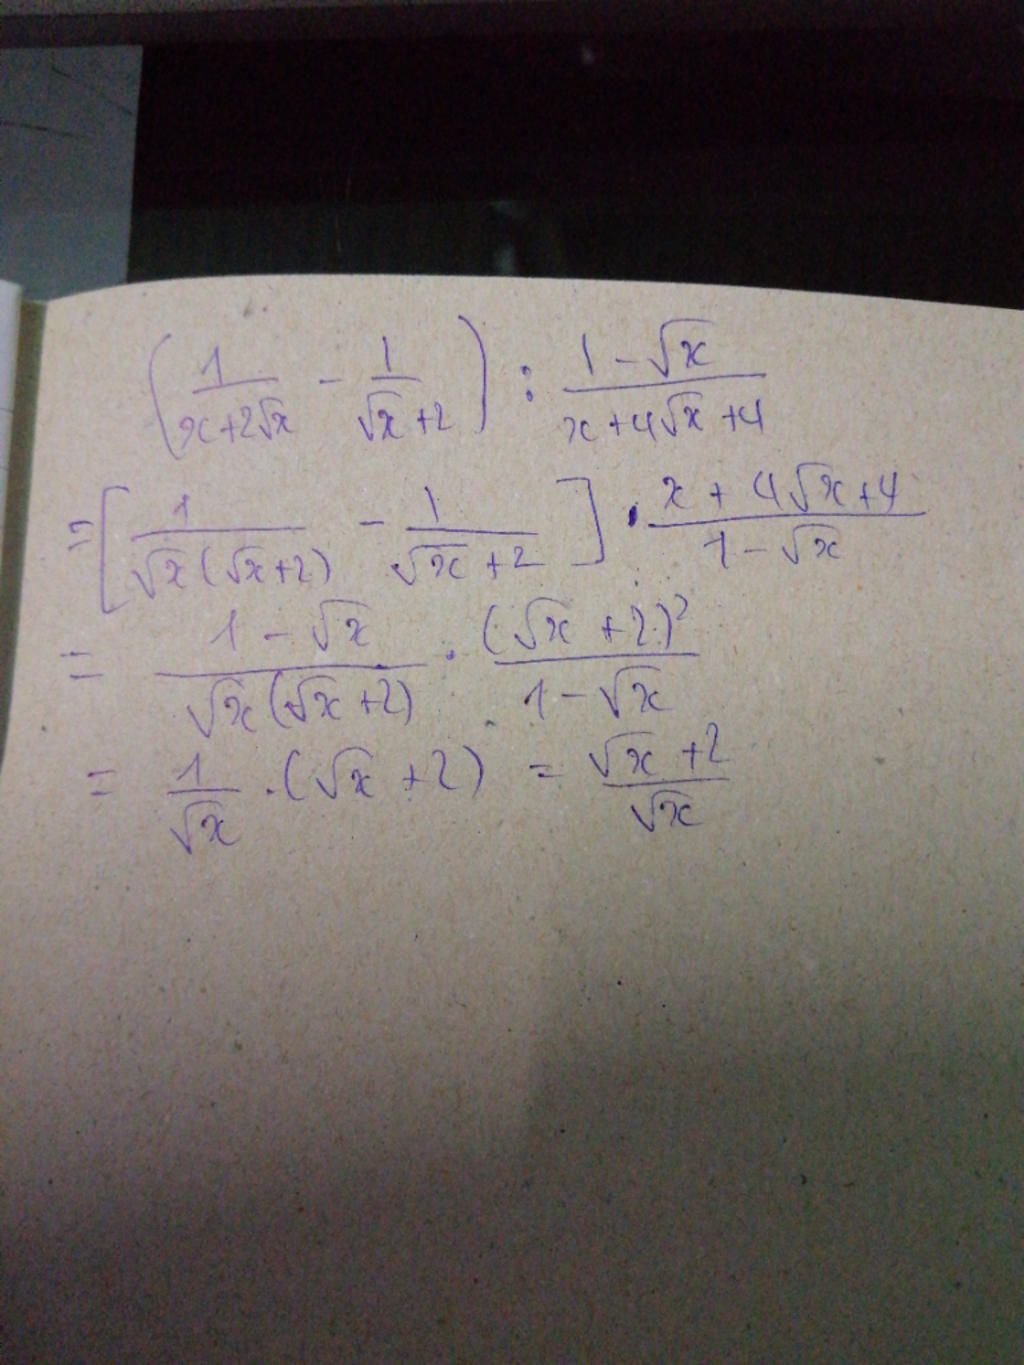 (1/(x+2√x) - 1/(√x+2)) : (1-√x)/(x+4√x+4)
= [1/(√x(√x+2)) - 1/(√x+2)] · (x+4√x+4)/(1-√x)
= (1-√x)/(√x(√x+2)) · (√x+2)²/(1-√x)
= 1/√x · (√x+2) = (√x+2)/√x